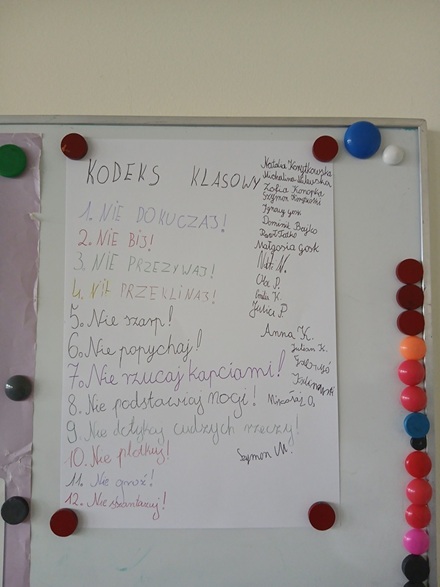 KODEKS KLASOWY
1. NIE DOKUCZAJ!
2. NIE BIJ!
3. NIE PRZEZYWAJ!
4. NIE PRZEKLINAJ!
5. Nie szarp!
6. Nie popychaj!
7. Nie rzucaj kapciami!
8. Nie podstawiaj nogi!
9. Nie dotykaj cudzych rzeczy!
10. Nie plotkuj!
11. Nie groź!
12. Nie szantażuj!
Natalia
Zofia Konopka
Szymon
Ignacy Gosk
Dominik Bojko
Małgosia Gosk
Nat. N.
Ola P.
Emilia K.
Julia P.
Anna K.
Julian K.
Mikołaj O.
Szymon M.